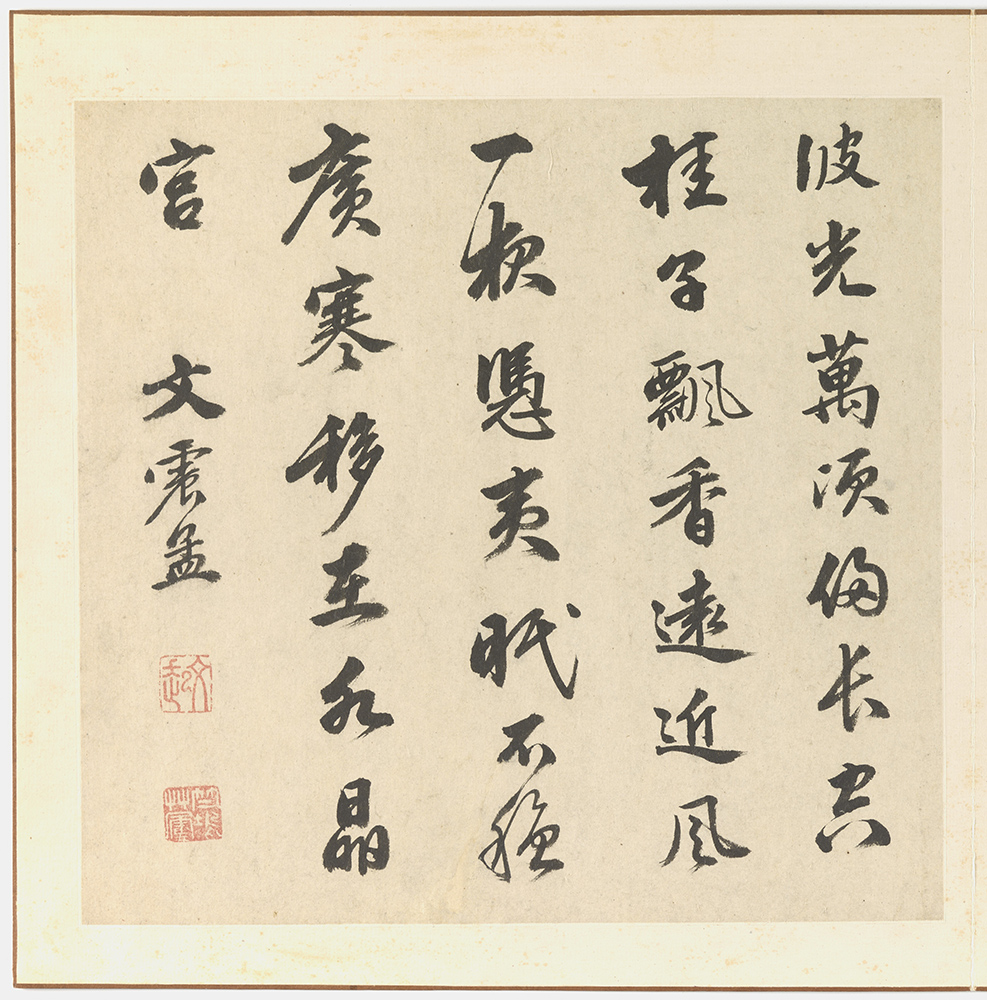 波光萬頃徧長空
桂子飄香遠近風
一枕憑夷眠不穩
廣寒移在水晶
宮 文震孟
文起